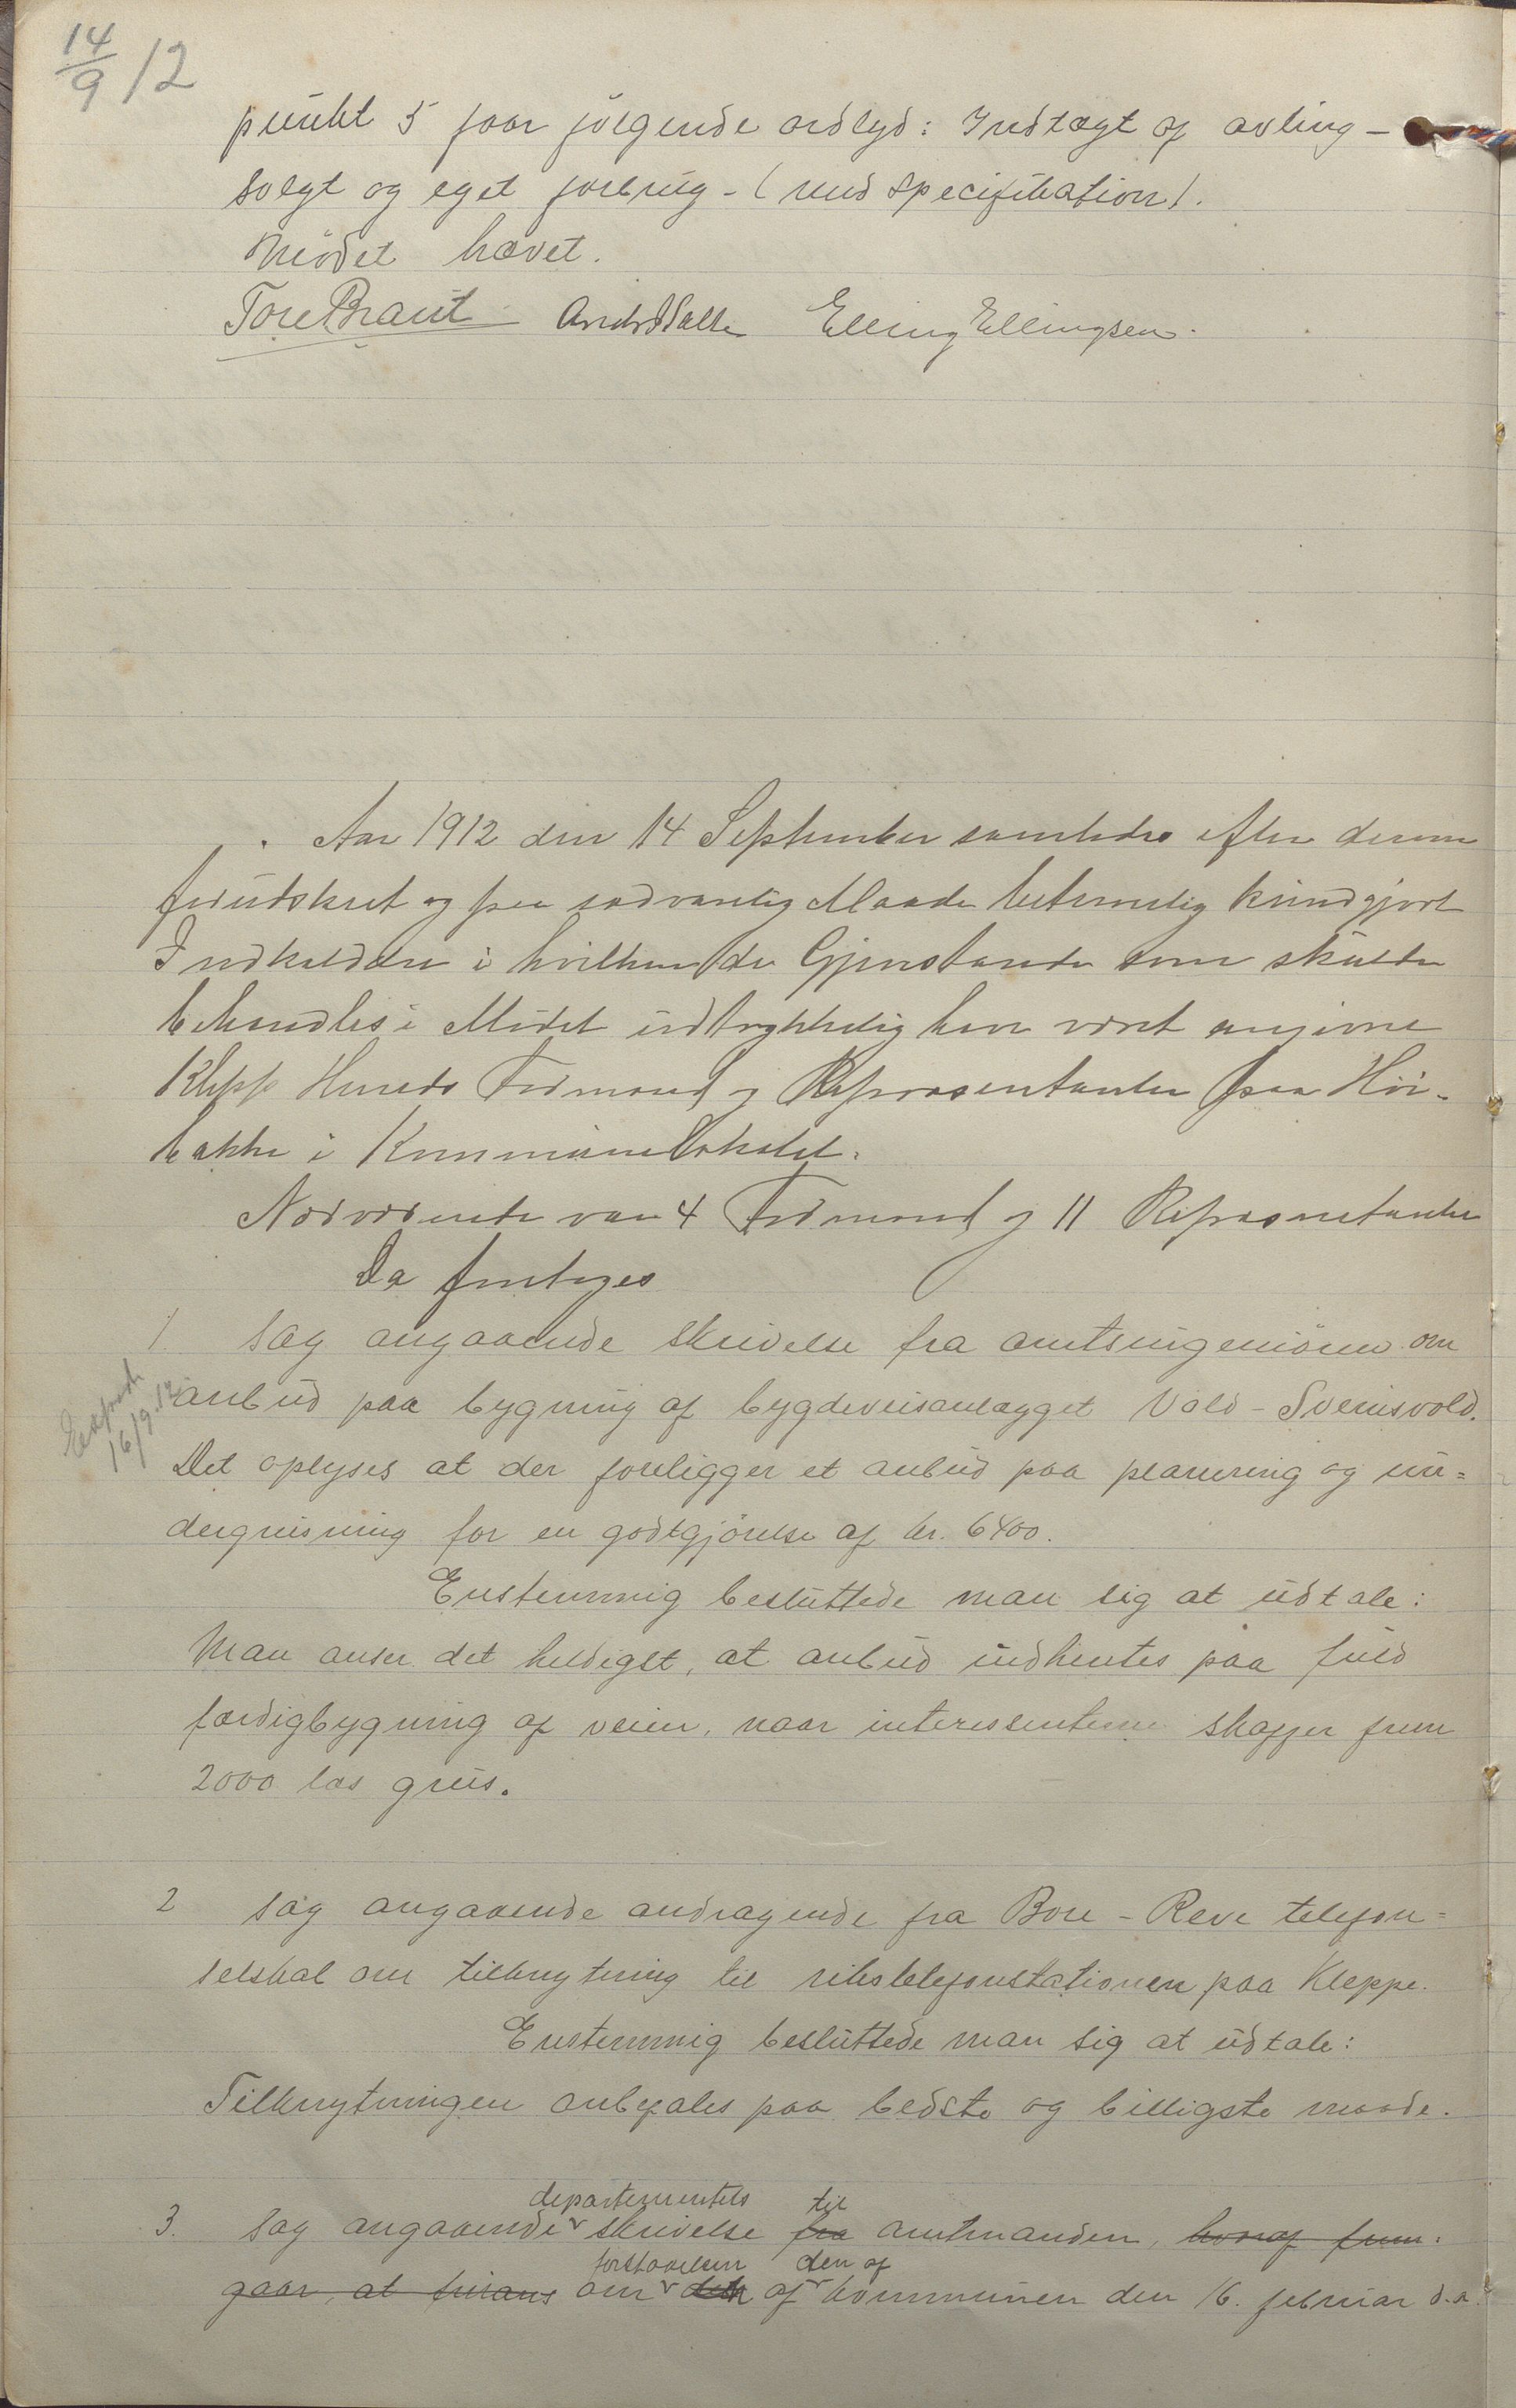 14/9 /12
punkt 5 faar følgende ordlyd: Indtægt af avling -
solgt og eget forbrug - (med specifikation).
Mødet hævet.
Tore Braut Elling Ellingsen.
Aar 1912 den 14 September samledes efter derom
forudskeet og paa sædvanlig Maade betimelig kundgjort
Indkaldelse i hvilken de Gjenstande som skulde
behandles i Mødet udtrykkelig have været angivne
Klepp Herreds Formænd og Repræsentanter paa Høi-
bakke i Kommunelokalet.
Nærværende var 4 Formænd og 11 Repræsentanter
Da foretoges
1. Sag angaaende skrivelse fra amtsingeniøren om
Exped. 16/9.12
anbud paa bygning af bygdeveisanlægget Vold - Svensvold.
Det oplyses at der foreligger et anbud paa planering og un=
dergrusning for en godtgjørelse af kr. 6400.
Enstemmig besluttede man sig at udtale:
Man anser det heldigst, at anbud indhentes paa fuld
færdigbygning af veien, naar interessenterne skaffer frem
2000 læs grus.
2 Sag angaaende andragende fra Bore - Reve telefon=
selskab om tilknytning til rikstelefonstationen paa Kleppe.
Enstemmig besluttede man sig at udtale:
Tilknytningen anbefales paa bedste og billigste maade.
departementets til
3. Sag angaaende skrivelse fra amtmanden, hvoraf frem=
forstaaelsen den af
gaar, at finans om af kommunen den 16. februar d.a.